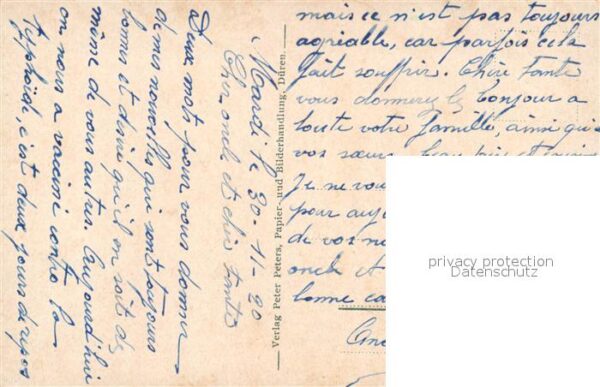 Mardi le 30-11-20
Cher oncle et chère Tante
Deux mots pour vous donner
de mes nouvelles qui sont toujours
bonnes et désire qu'il en soit de
même de vous autres. Aujourd'hui
on nous a vacciné contre la
typhoïde, c'est deux jours de repos
mais ce n'est pas toujours
agréable, car parfois cela
fait souffrir. Chère Tante
vous donnerez le bonjour a
toute votre famille, ainsi qu'a
vos sœurs
Je ne vou
pour auj
de vos no
oncle et
bonne ca
Verlag Peter Peters, Papier- und Bilderhandlung, Düren.
privacy protection
Datenschutz